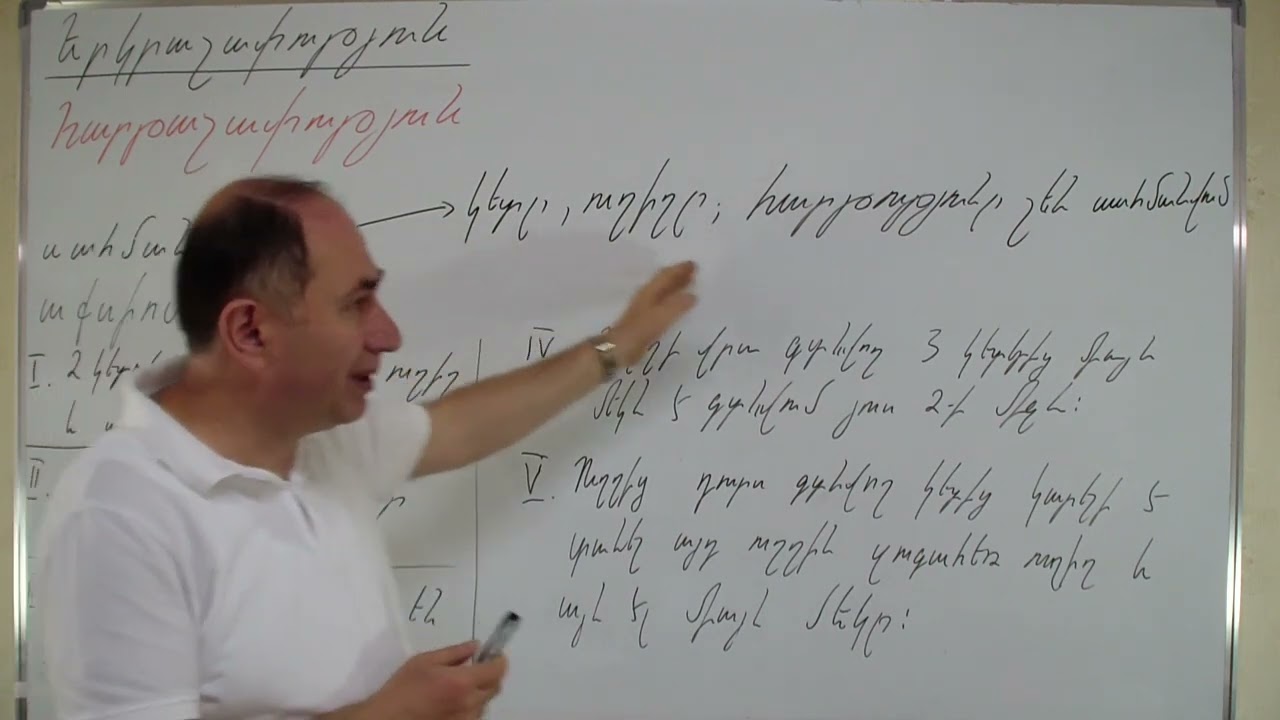 Երկրաչափություն
Հարթաչափություն
կետը, ուղիղը, հարթությունը չեն սահմանվում
սահման
աքսիո
I. 2 կետ ուղիղ
և
II.
են
IV վրա գտնվող 3 կետերից միայն
մեկն է գտնվում մյուս 2-ի միջև:
V. Ուղղից դուրս գտնվող կետից կարելի է
տանել այդ ուղղին զուգահեռ ուղիղ և
այն էլ միայն մեկը: